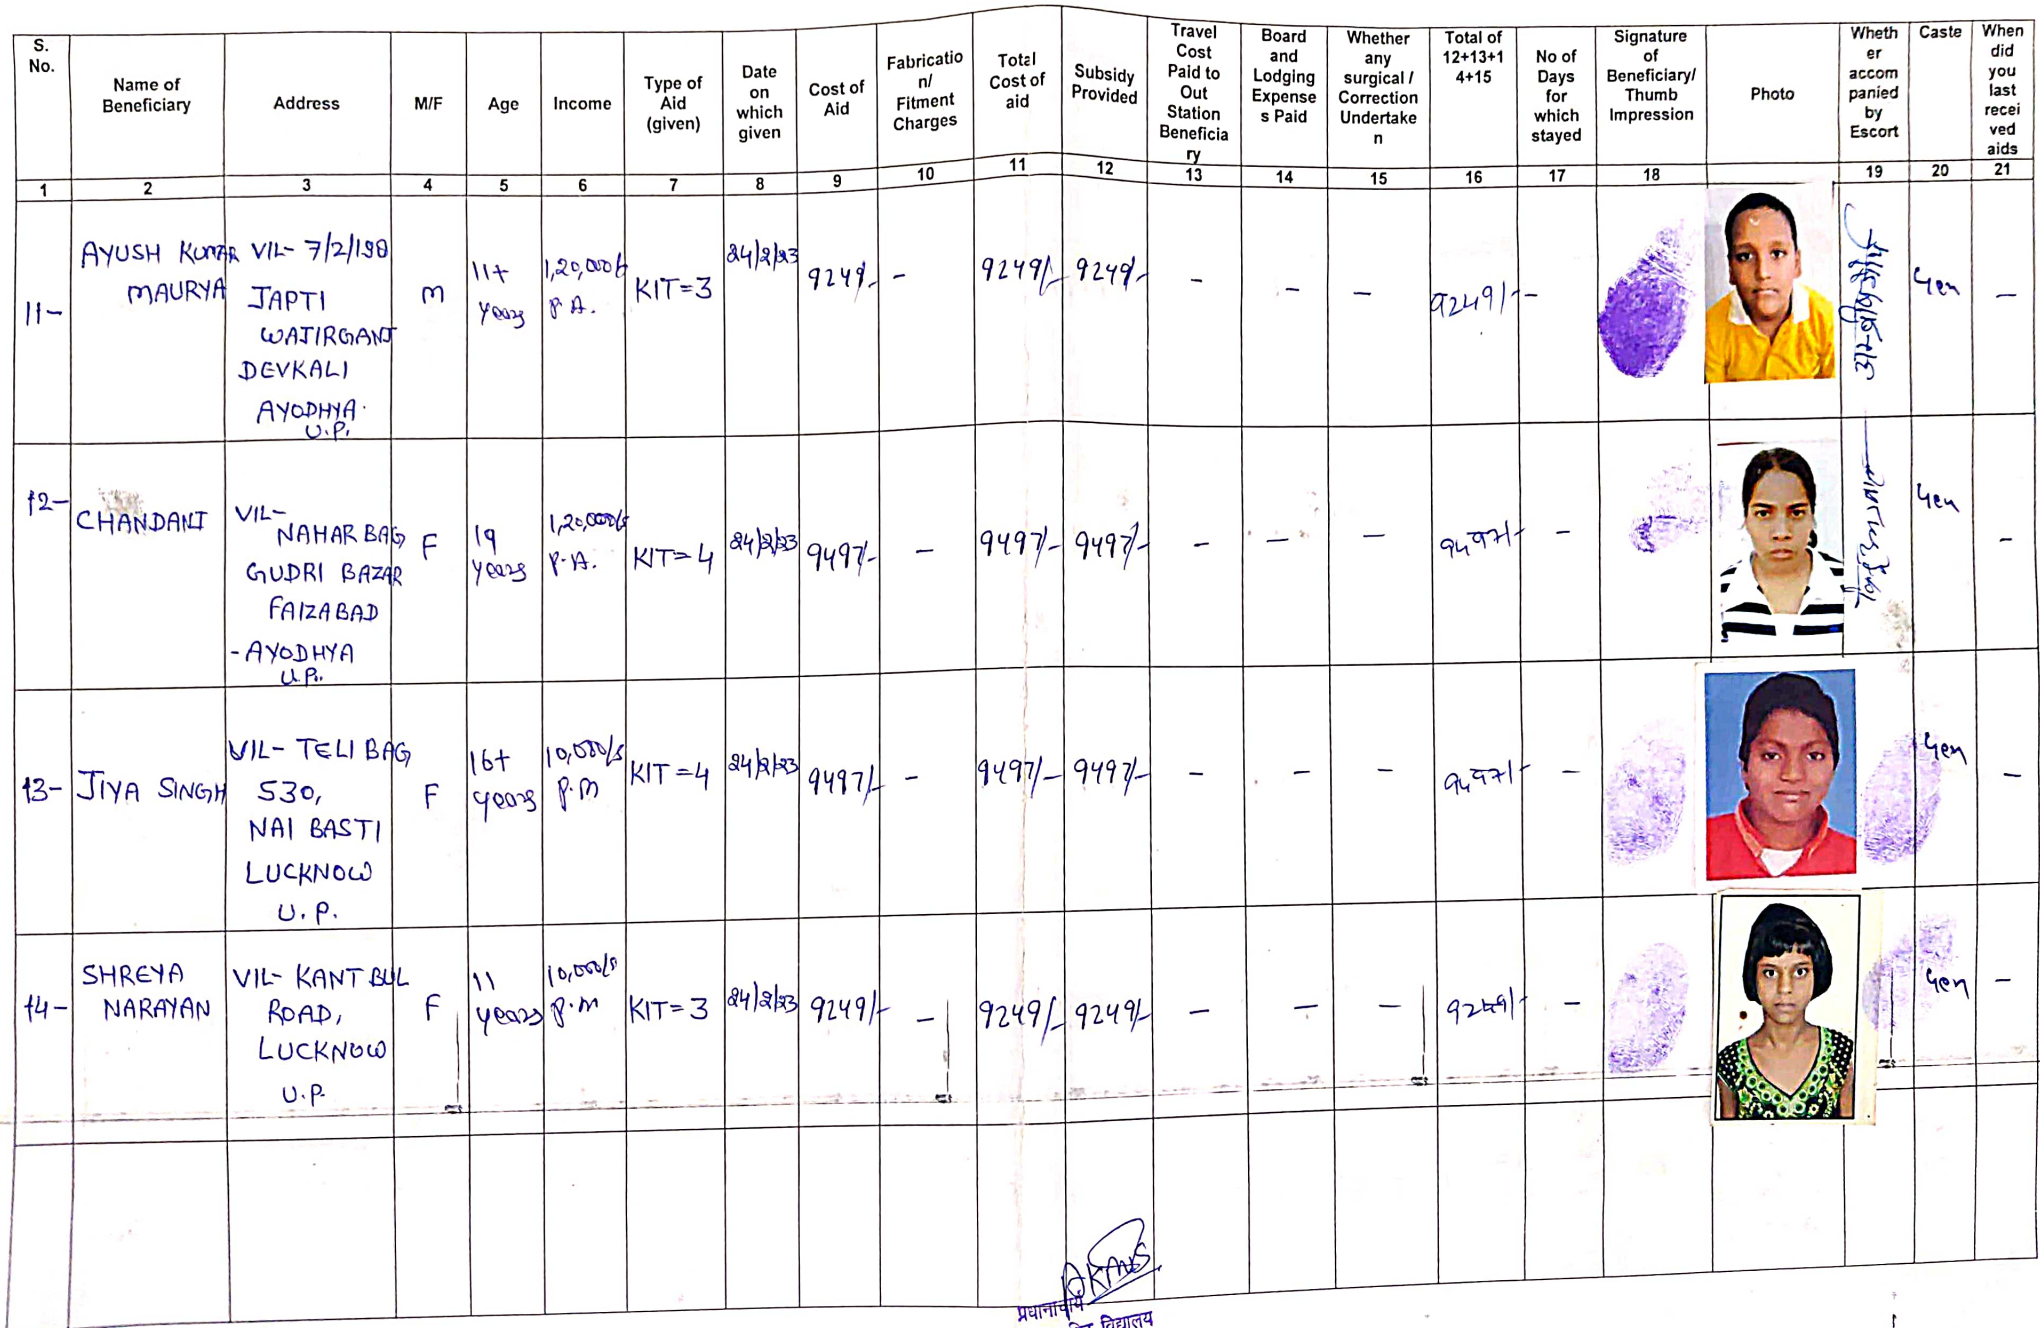 S. No.
Name of Beneficiary
Address
M/F
Age
Income
Type of Aid (given)
Date on which given
Cost of Aid
Fabricatio n/ Fitment Charges
Total Cost of aid
Subsidy Provided
Travel Cost Paid to Out Station Beneficia ry
Board and Lodging Expense s Paid
Whether any surgical / Correction Undertake n
Total of 12+13+1 4+15
No of Days for which stayed
Signature of Beneficiary/ Thumb Impression
Photo
Wheth er accom panied by Escort
Caste
When did you last recei ved aids
1 2 3 4 5 6 7 8 9 10 11 12 13 14 15 16 17 18 19 20 21
11-
AYUSH KUMAR
MAURYA
VIL- 7/2/198
JAPTI
WAJIRGANJ
DEVKALI
AYODHYA.
U.P.
M
11+
years
1,20,000/-
P.A.
KIT=3
24/2/23
9249/-
-
9249/-
9249/-
-
-
-
9249/-
-
Gen
-
12-
CHANDANI
VIL-
NAHAR BAG
GUDRI BAZAR
FAIZABAD
-AYODHYA
U.P.
F
19
years
1,20,000/-
P.A.
KIT=4
24/2/23
9497/-
-
9497/-
9497/-
-
-
-
9497/-
-
Gen
-
13-
JIYA SINGH
VIL- TELI BAG
530,
NAI BASTI
LUCKNOW
U.P.
F
16+
years
10,000/-
P.M
KIT=4
24/2/23
9497/-
-
9497/-
9497/-
-
-
-
9497/-
-
Gen
-
14-
SHREYA
NARAYAN
VIL- KANT BUL
ROAD,
LUCKNOW
U.P.
F
11
years
10,000/-
P.M
KIT=3
24/2/23
9249/-
-
9249/-
9249/-
-
-
-
9249/-
-
Gen
-
प्रधानाचार्य
विद्यालय